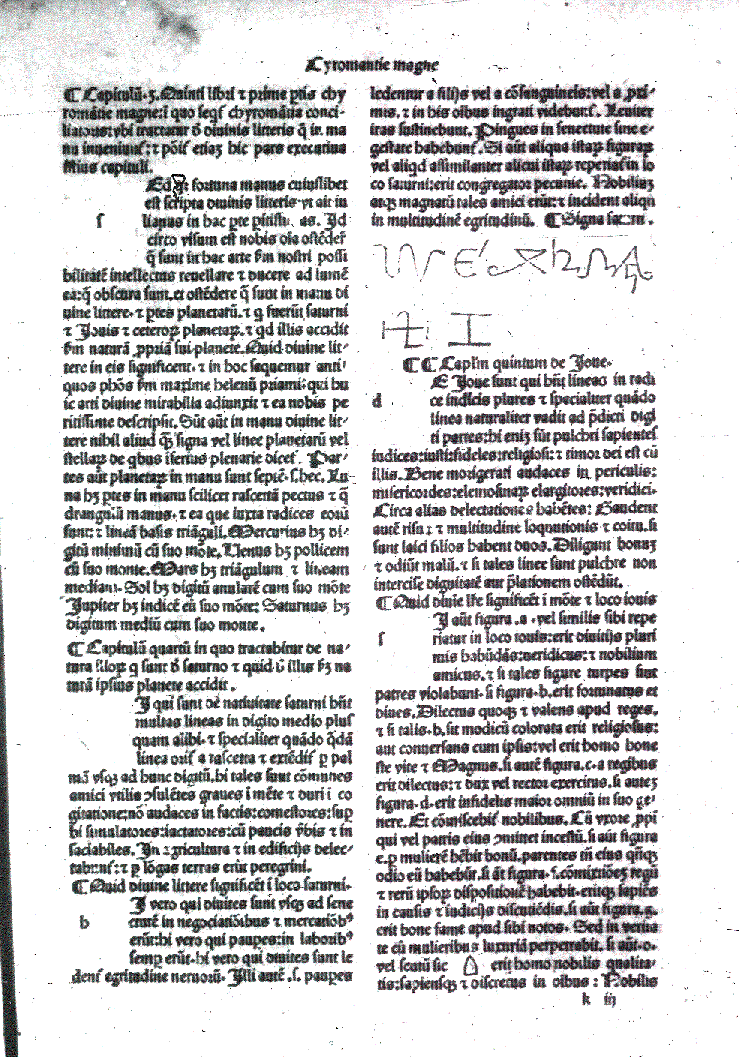 Cyromantie magne
¶ Capitulū .3. Quinti libri ⁊ prime ptis chy
romātie magne: ī quo seqr̄ chyromātia conci
liatoris: vbi tractatur d̄ diuinis litteris q̄ in ma
nu inueniunt̄: ⁊ pōt̄ etiaȝ hic pars
capituli.
fortuna manus cuiuslibet
est scripta diuinis litteris vt ait iu
s lianus in hac pte as. Id
circo visum est nobis oīa ostēder̄
q̄ sunt in hac arte s̄m nostri possi
bilitatē intellectus reuellare ⁊ ducere ad lumē
ea: q̄ obscura sunt. et ostēdere q̄ sunt in manu di
uine littere. ⁊ ptes planetarū. ⁊ q̄ fuerīt saturni
⁊ Jouis ⁊ ceteroꝝ planetaꝝ. ⁊ qd illis accidit
s̄m naturā ppriā sui planete. Quid diuine lit/
tere in eis significent. ⁊ in hoc sequemur anti/
quos phōs s̄m maxime helenū priami: qui hu
ic arti diuine mirabilia adiunxit ⁊ ea nobis pe
ritissime descripsit. Sūt aūt in manu diuine lit/
tere nihil aliud q̄ signa vel linee planetarū vel
stellaꝝ de qbus iferius plenarie dicet̄. Par/
tes aūt planetaꝝ in manu sunt septē. s. hec. Lu
na hȝ ptes in manu scilicet rascetā pectus ⁊ q̄
drangulū manus. ⁊ ea que iuxta radices eorū
sunt: ⁊ lineā basis triāguli. Mercurius hȝ di/
gitū minimū cū suo mōte. Uenus hȝ pollicem
cū suo monte. Mars hȝ triāgulum ⁊ lineam
mediam. Sol hȝ digitū anularē cum suo mōte
Jupiter hȝ indicē cū suo mōte: Saturnus hȝ
digitum mediū cum suo monte.
¶ Capitulū quartū in quo tractabitur de na/
tura filioꝝ q̄ sunt d̄ saturno ⁊ quid illis s̄m na
turā ipsius planete accidit.
I qui sunt de natiuitate saturni hn̄t
multas lineas in digito medio plus
quam alibi. ⁊ specialiter quādo q̄dā
linea orit̄ a rascetta ⁊ extēdit̄ p pal
mā vsq̄ ad hunc digitū. hi tales sunt cōmunes
amici vtilis ↄsulētes graues ī mēte ⁊ duri ī co
gitatione: nō audaces in factis: comestores: sup
bi simulatores: iactatores: cū paucis v̄bis ⁊ in
saciabiles. In agricultura ⁊ in edificijs delec/
tabunt̄: ⁊ p lōgas terras erūt peregrini.
¶ Quid diuine littere significēt ī loco saturni.
I vero qui diuites sunt vsq̄ ad sene
b ctutē in negociatiōibus ⁊ mercatiōb⁹
erūt: hi vero qui paupes: in laborib⁹
semp erūt. hi vero qui diuites sunt le
dent̄ egritudine neruorū. Illi autē .s. paupes
ledentur a filijs vel a cōsanguineis: vel a pri/
mis. ⁊ in his oībus ingrati videbunt̄. Leuiter
iras sustinebunt. Pingues in senectute siue e/
gestate habebunt̄. Si aūt aliqua istaꝝ figuraꝝ
vel aliqd assimilanter alicui istaꝝ reperiat̄ in lo
co saturni: erit congregator pecunie. Nobiliuȝ
atqȝ magnatū tales amici erūt: ⁊ incident aliqn̄
in multitudinē egritudinū. ¶ Signa saturni.
¶ ¶ Caplm quintum de Joue.
E Joue sunt qui hn̄t lineas in radi
d ce indicis plures ⁊ specialiter quādo
linea naturaliter vadit ad p̄dicti digi
ti partes: hi eniȝ sūt pulchri sapientes
iudices: iusti: fideles: religiosi: ⁊ timor dei est cū
illis. Bene morigerati audaces in periculis:
misericordes: elemosinaꝝ elargitores: veridici.
Circa alias delectationes habētes: Gaudent
autē risu: ⁊ multitudine loquutionis ⁊ coitu. si
sunt laici filios habent duos. Diligunt bonuȝ
⁊ odiūt malū. ⁊ si tales linee sunt pulchre non
intercise dignitatē aut p̄lationem ostēdūt.
¶ Quid diuie lr̄e significēt ī mōte ⁊ loco iouis
I aūt figura .a. vel similis sibi repe
s riatur in loco iouis: erit diuitijs pluri
mis habūdās: veridicus: ⁊ nobilium
amicus. ⁊ si tales figure turpes sint
patres violabunt. si figura .b. erit fortunatus et
diues. Dilectus quoqȝ ⁊ valens apud reges.
⁊ si talis .b. sit modicū colorata erit religiosus:
aut conuersans cum ipsis: vel erit homo hone
ste vite ⁊ Magnus. si autē figura .c. a regibus
erit dilectus: ⁊ dux vel rector exercitus. si autēȝ
figura .d. erit infidelis maior omniū in suo ge/
nere. Et cōmiscebit̄ nobilibus. Cū vxore ppi
qui vel patris eius ↄmittet incestū. si aūt figura
e. p mulierē hēbit bonū. parentes in eius q̄sqȝ
odio eū habebūt. si aūt figura .f. regū
⁊ rerū ipsoꝝ dispositionē habebit. eritqȝ sapiēs
in causis ⁊ iudicijs discutiēdis. si aūt figura .g.
erit bone fame apud sibi notos. Sed in verita
te cū mulieribus luxuriā perpetrabit. si aūt .o.
vel scutū sic erit homo nobilis qualita/
tis: sapiensqȝ ⁊ discretus in oībus: Nobilis
k iij